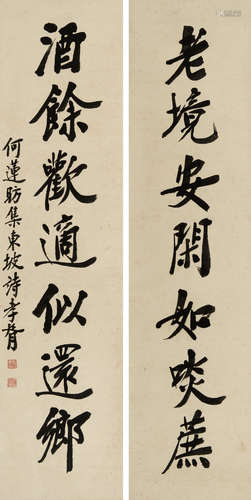 老境安閑如啖蔗
酒餘歡適似還鄉
何蓮昉集東坡詩孝胥